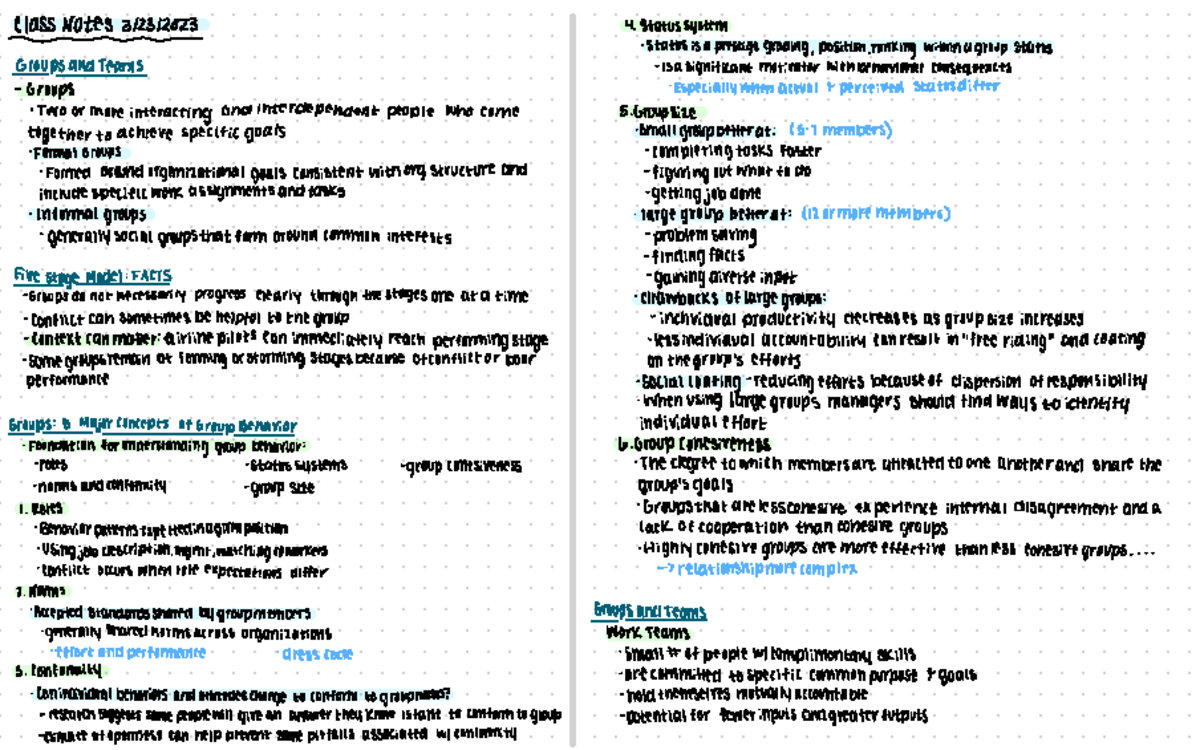 Class Notes 3/23/2023
Groups and Teams
- Groups
· Two or more interacting and interdependent people who come
together to achieve specific goals
· Formal Groups
· Formed around organizational goals consistent with org structure and
include specific work assignments and tasks
· Informal groups
· generally social groups that form around common interests
Five Stage Model: FACTS
- Groups do not necessarily progress clearly through the stages one at a time
- Conflict can sometimes be helpful to the group
- Context can matter: airline pilots can immediately reach performing stage
- Some groups remain at forming or storming stages because of conflict or poor
performance
Groups: 6 Major Concepts of Group Behavior
- Foundation for understanding group behavior:
- roles - Status systems - group cohesiveness
- norms and conformity - group size
1. Roles
· Behavior patterns expected in a given position
· Using job description, mgmt, matching coworkers
· Conflict occurs when role expectations differ
2. Norms
· Accepted standards shared by group members
- generally shared norms across organizations
· effort and performance · dress code
3. Conformity
· Can individual behaviors and attitudes change to conform to group norms?
- research suggests some people will give an answer they know isn't to conform to group
- of openness can help prevent some pitfalls associated w/ conformity
4. Status System
· Status is a prestige grading, position, ranking within a group status
- is a significant motivator with behavioral consequences
Especially when actual + perceived status differ
5. Group Size
· Small group better at: (5-7 members)
- completing tasks faster
- figuring out what to do
- getting job done
· large group better at: (12 or more members)
- problem solving
- finding facts
- gaining diverse input
· drawbacks of large groups:
· individual productivity decreases as group size increases
· less individual accountability can result in "free riding" and coasting
on the group's efforts
· Social loafing - reducing efforts because of dispersion of responsibility
· When using large groups managers should find ways to identify
individual effort
6. Group Cohesiveness
· The degree to which members are attracted to one another and share the
group's goals
· Groups that are less cohesive experience internal disagreement and a
lack of cooperation than cohesive groups
· Highly cohesive groups are more effective than less cohesive groups....
-> relationship more complex
Groups and Teams
Work Teams
- Small # of people w/ complimentary skills
- are committed to specific common purpose + goals
- hold themselves mutually accountable
- potential for fewer inputs and greater outputs